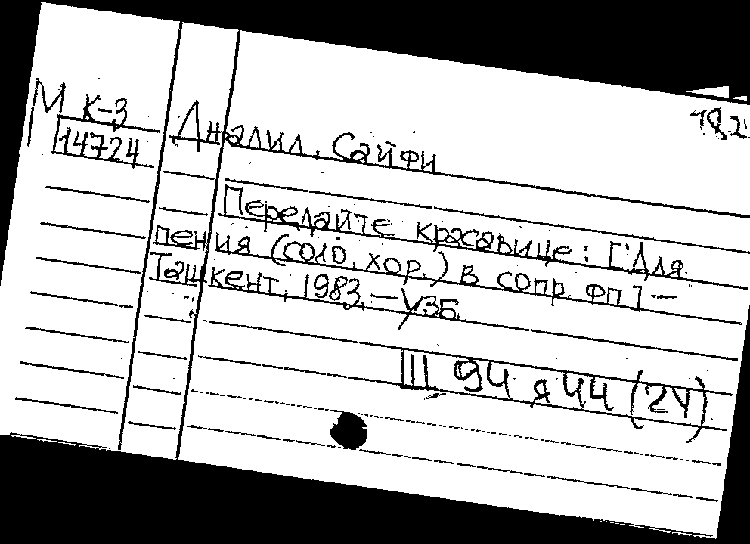 М К-3
14724
18,2
Джалил, Сайфи
Передайте красавице: [Для
пения (соло, хор.) в сопр. фп] –
Ташкент, 1983. – Узб.
Щ 94 я 44 (2У)